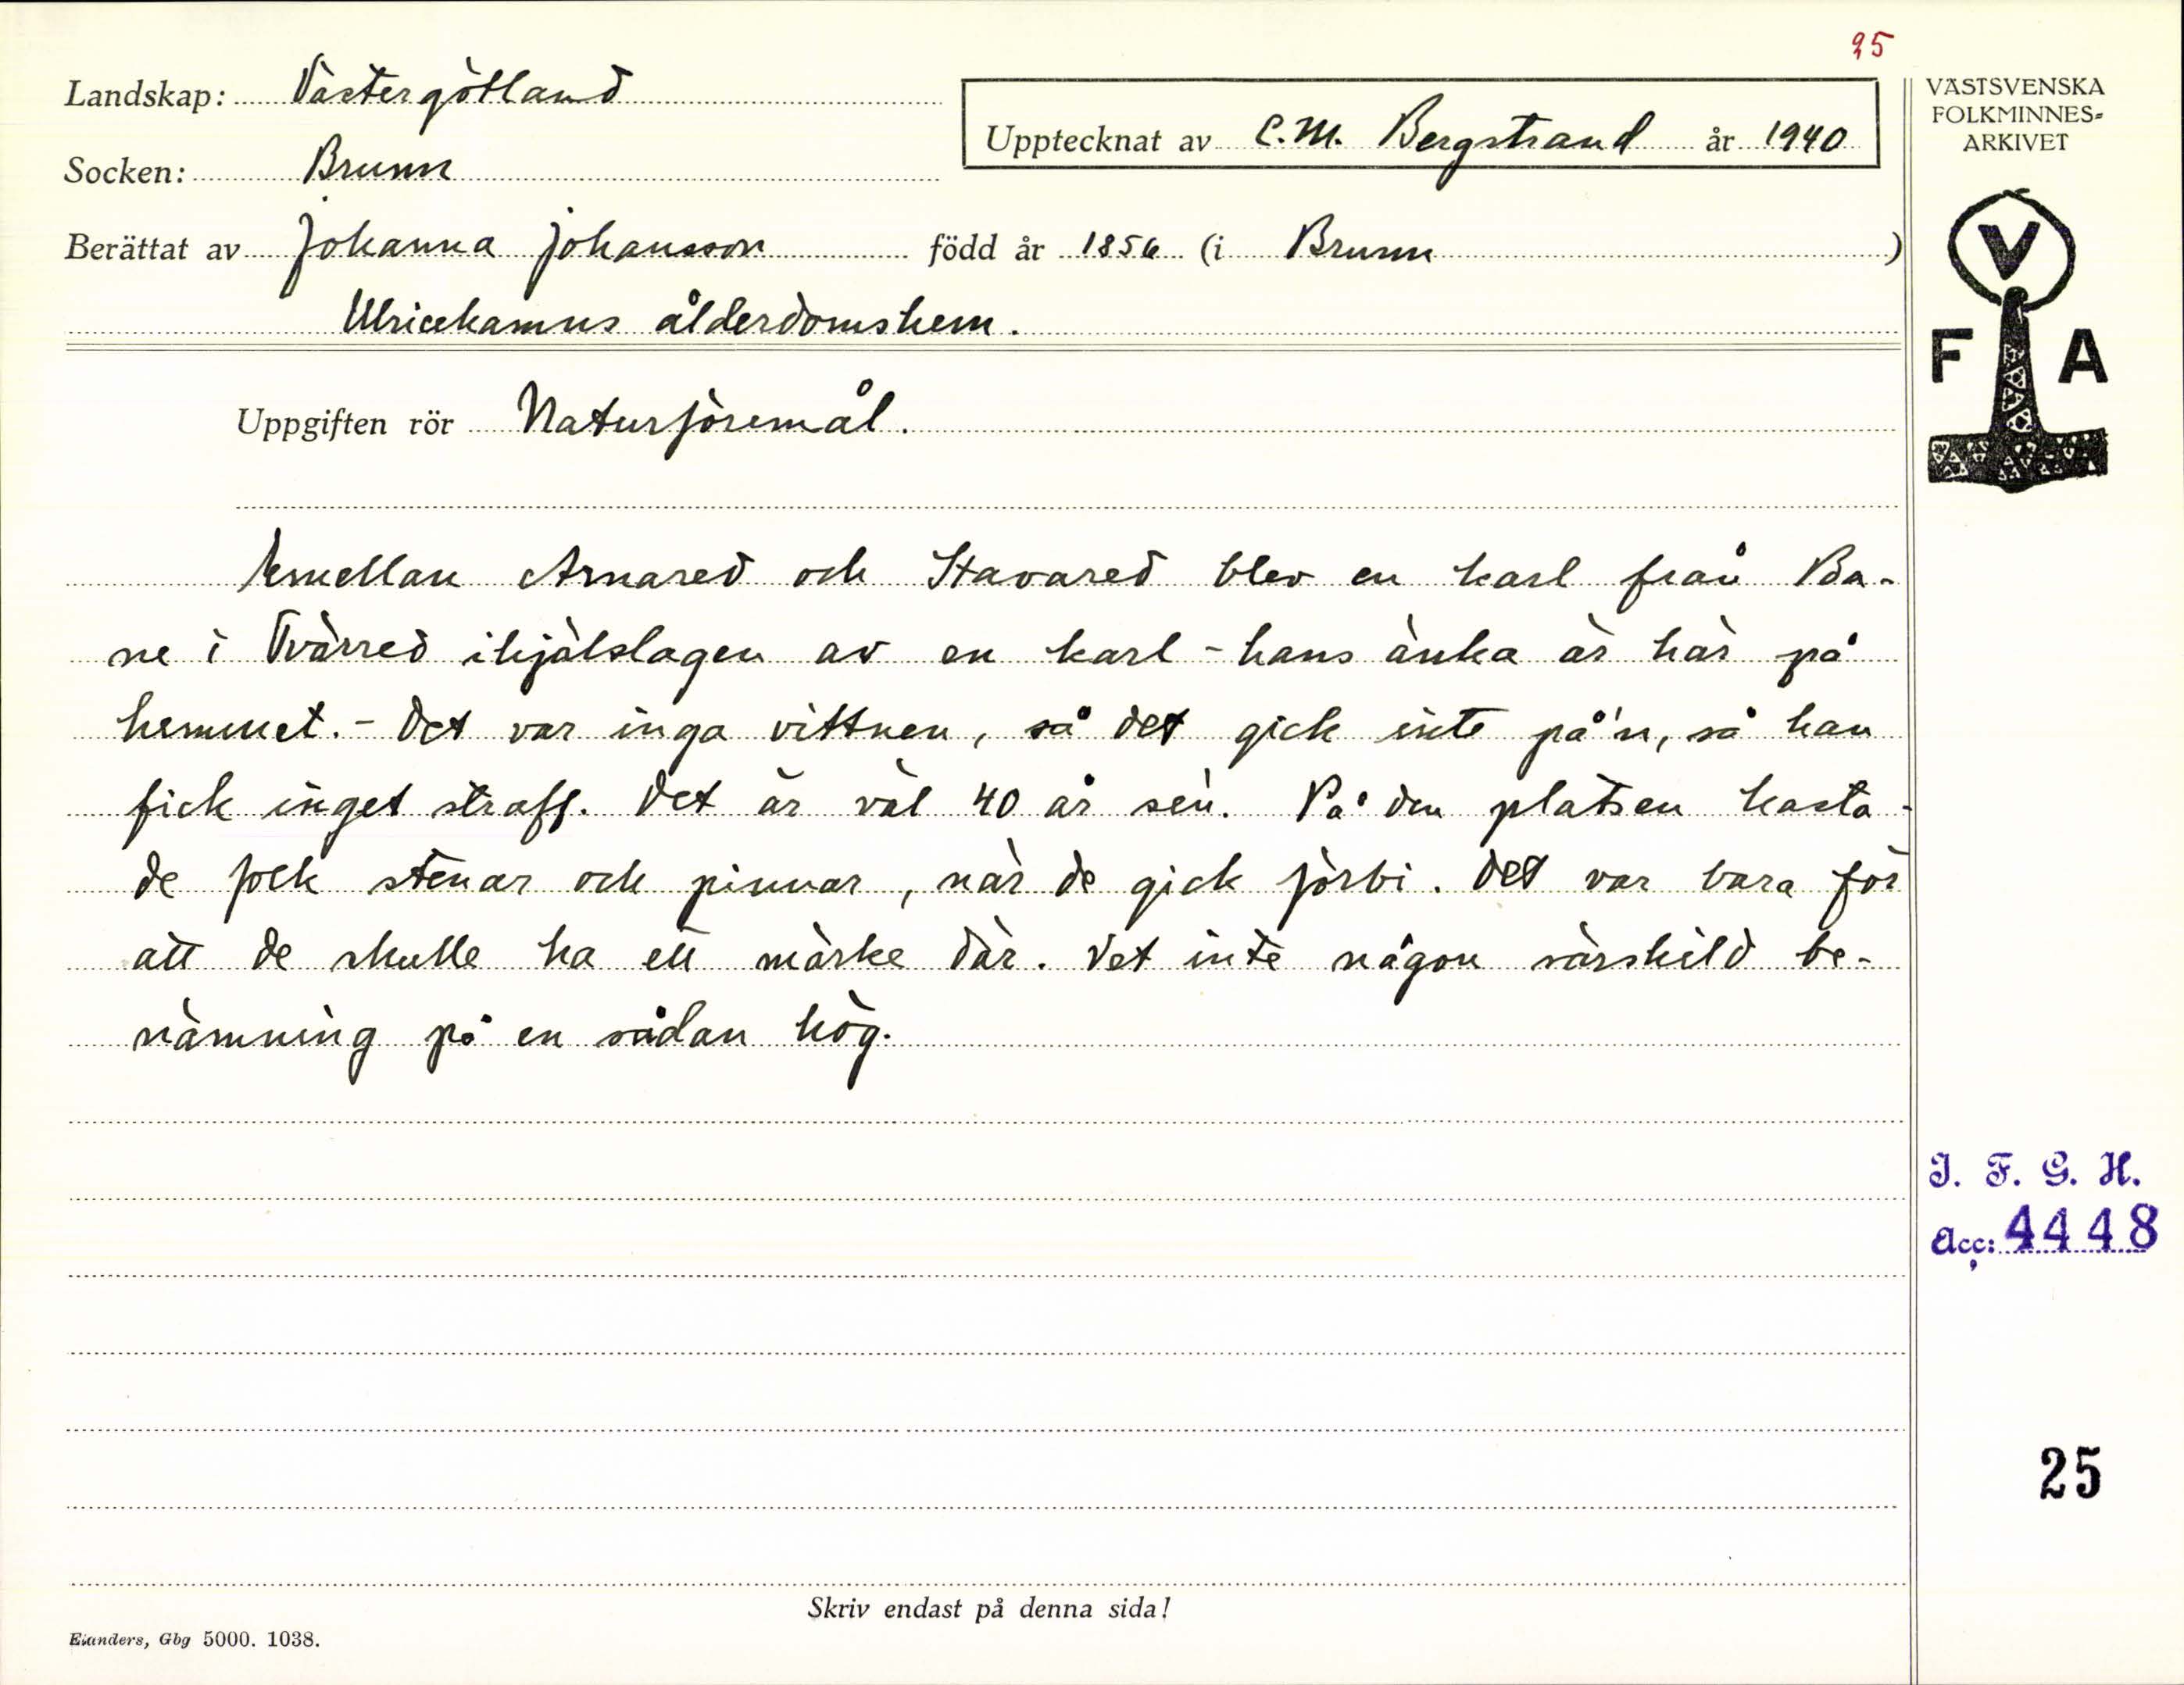 25
Landskap: Västergötland
Upptecknat av C.M. Bergstrand år 1940
Socken: Brunn
Berättat av Johanna Johansson född år 1856 (i Brunn)
Ulricehamns ålderdomshem.
Uppgiften rör Naturföremål.
Emellan Arnared och Stavared blev en karl från Ba-
ne i Tvärred ihjälslagen av en karl - hans änka är här på
hemmet. - Det var inga vittnen, så det gick inte på'n, så han
fick inget straff. Det är väl 40 år sen. På den platsen kasta-
de folk stenar och pinnar, när de gick förbi. Det var bara för
att de skulle ha ett märke där. Vet inte någon särskild be-
nämning på en sådan hög.
Skriv endast på denna sida!
Elanders, Gbg 5000. 1038.
VÄSTSVENSKA
FOLKMINNES-
ARKIVET
V
F A
I. F. G. H.
Acc: 4448
25